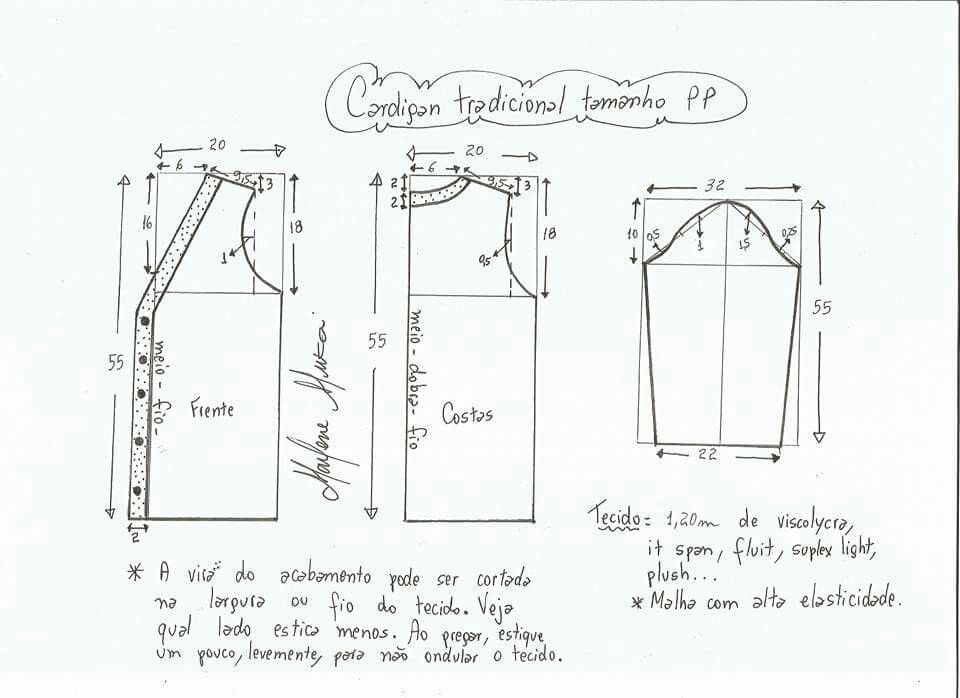 Cardigan tradicional tamanho PP
20
6
9,5
3
16
18
1
55
meio - fio -
Frente
2
Marlene Mukai
20
6
9,5
3
2
2
18
0,5
55
meio - dobra - fio
Costas
32
10
0,5
1
1,5
0,75
55
22
Tecido = 1,20m de viscolycra,
it span, fluit, suplex light,
plush...
* Malha com alta elasticidade.
* A vira do acabamento pode ser cortada
na largura ou fio do tecido. Veja
qual lado estica menos. Ao pregar, estique
um pouco, levemente, para não ondular o tecido.